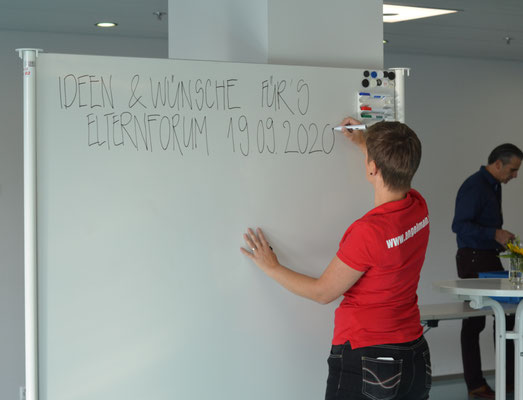 IDEEN & WÜNSCHE FÜR'S
ELTERNFORUM 19.09.2020
www.angelman.